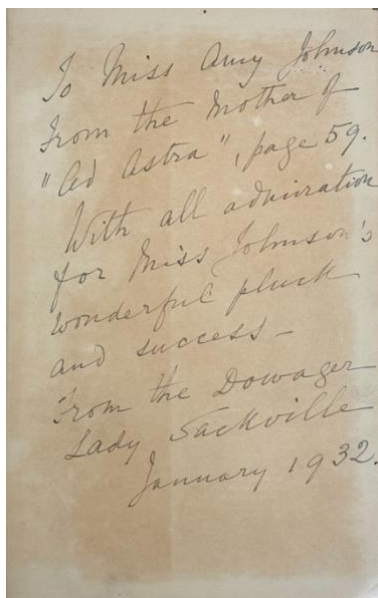 To Miss Amy Johnson
From the Mother of
"Ad Astra", page 59.
With all admiration
for Miss Johnson's
wonderful pluck
and success –
From the Dowager
Lady Sackville
January 1932.